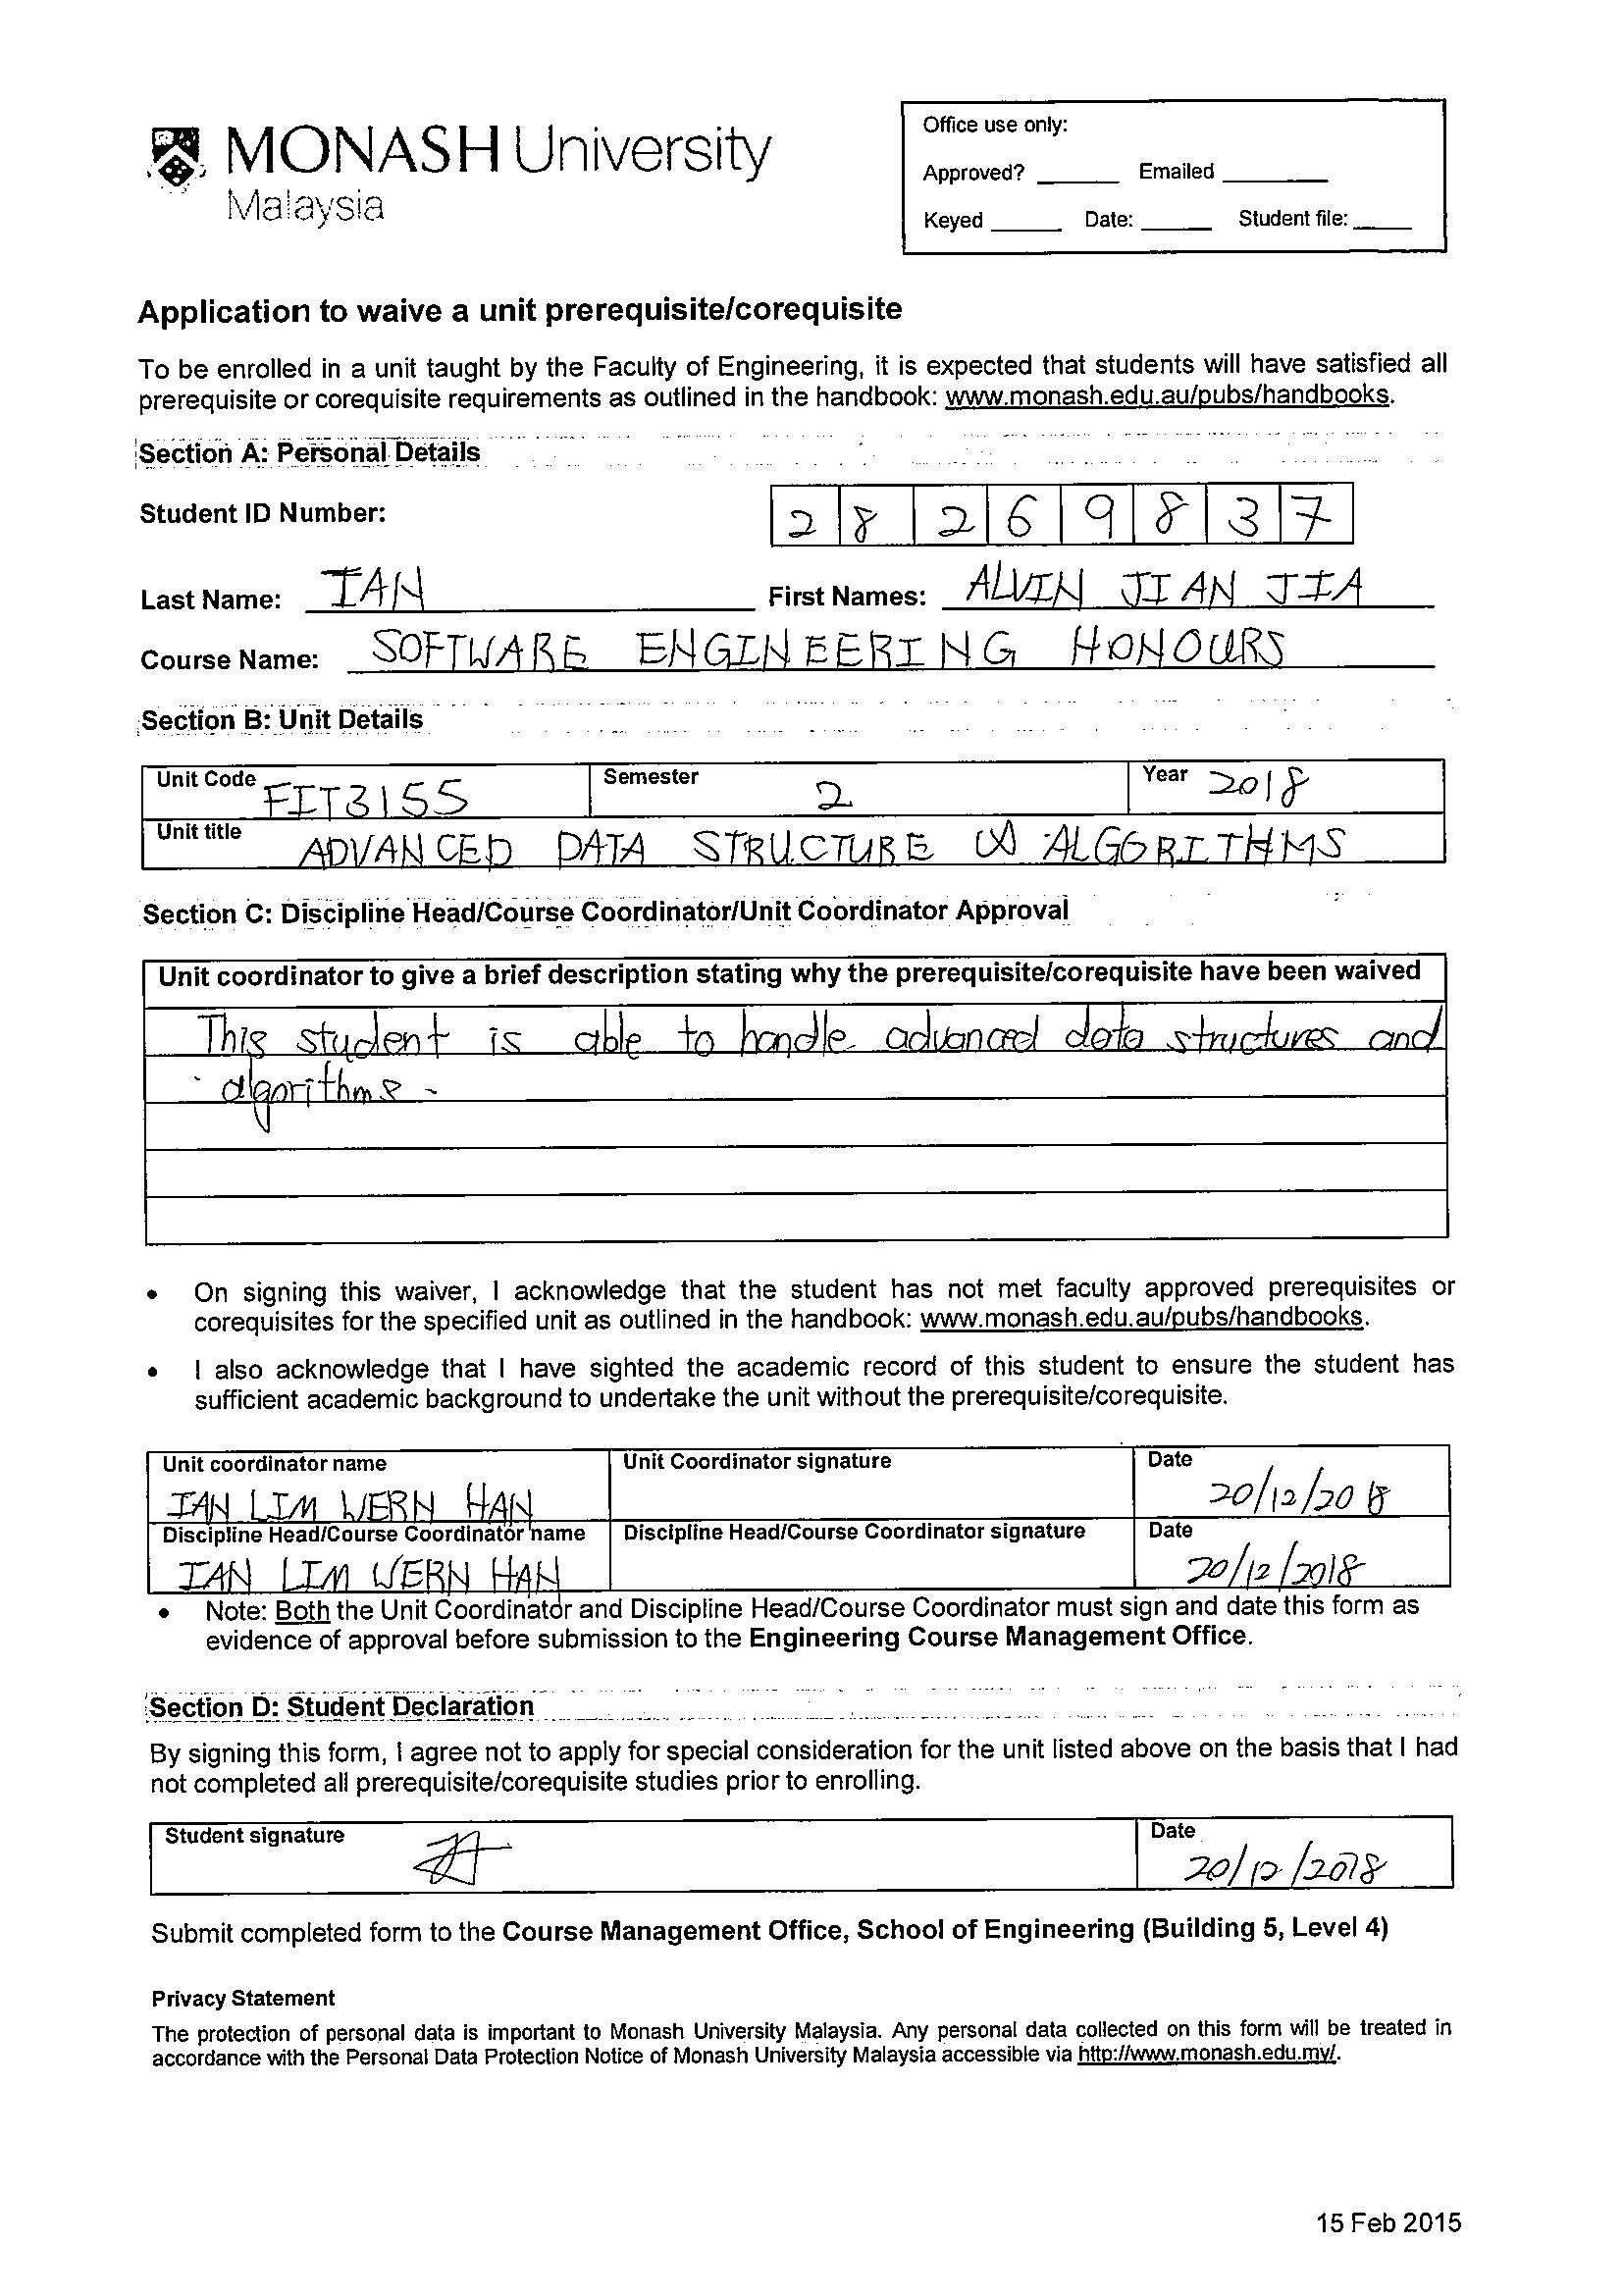 MONASH University
Malaysia
Office use only:
Approved? ______ Emailed ______
Keyed ______ Date: ______ Student file: ______
Application to waive a unit prerequisite/corequisite
To be enrolled in a unit taught by the Faculty of Engineering, it is expected that students will have satisfied all
prerequisite or corequisite requirements as outlined in the handbook: www.monash.edu.au/pubs/handbooks.
Section A: Personal Details
Student ID Number: 2 8 2 6 9 8 3 7
Last Name: IAN First Names: ALVIN JIAN JIA
Course Name: SOFTWARE ENGINEERING HONOURS
Section B: Unit Details
Unit Code FIT3155 Semester 2 Year 2018
Unit title ADVANCED DATA STRUCTURE & ALGORITHMS
Section C: Discipline Head/Course Coordinator/Unit Coordinator Approval
Unit coordinator to give a brief description stating why the prerequisite/corequisite have been waived
This student is able to handle advanced data structures and
algorithms.
• On signing this waiver, I acknowledge that the student has not met faculty approved prerequisites or
corequisites for the specified unit as outlined in the handbook: www.monash.edu.au/pubs/handbooks.
• I also acknowledge that I have sighted the academic record of this student to ensure the student has
sufficient academic background to undertake the unit without the prerequisite/corequisite.
Unit coordinator name Unit Coordinator signature Date
IAN LIM WERN HAN 20/12/2018
Discipline Head/Course Coordinator name Discipline Head/Course Coordinator signature Date
IAN LIM WERN HAN 20/12/2018
• Note: Both the Unit Coordinator and Discipline Head/Course Coordinator must sign and date this form as
evidence of approval before submission to the Engineering Course Management Office.
Section D: Student Declaration
By signing this form, I agree not to apply for special consideration for the unit listed above on the basis that I had
not completed all prerequisite/corequisite studies prior to enrolling.
Student signature Date
20/12/2018
Submit completed form to the Course Management Office, School of Engineering (Building 5, Level 4)
Privacy Statement
The protection of personal data is important to Monash University Malaysia. Any personal data collected on this form will be treated in
accordance with the Personal Data Protection Notice of Monash University Malaysia accessible via http://www.monash.edu.my/.
15 Feb 2015